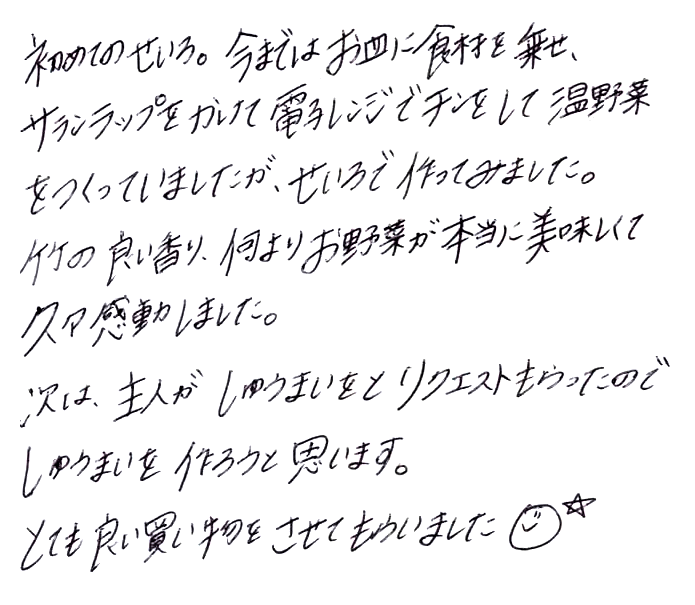 初めてのせいろ。今まではお皿に食材を乗せ、
サランラップをかけて電子レンジでチンをして温野菜
をつくっていましたが、せいろで作ってみました。
竹の良い香り、何よりお野菜が本当に美味しくて
久々感動しました。
次は、主人がしゅうまいをとリクエストもらったので
しゅうまいを作ろうと思います。
とても良い買い物をさせてもらいました